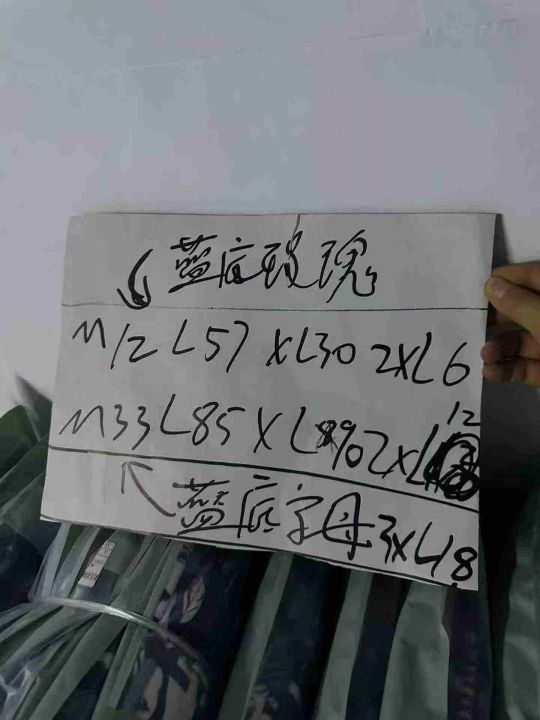 蓝底玫瑰
M12 L57 XL30 2XL6
M33 L85 XL890 2XL12
蓝底字母 3XL18